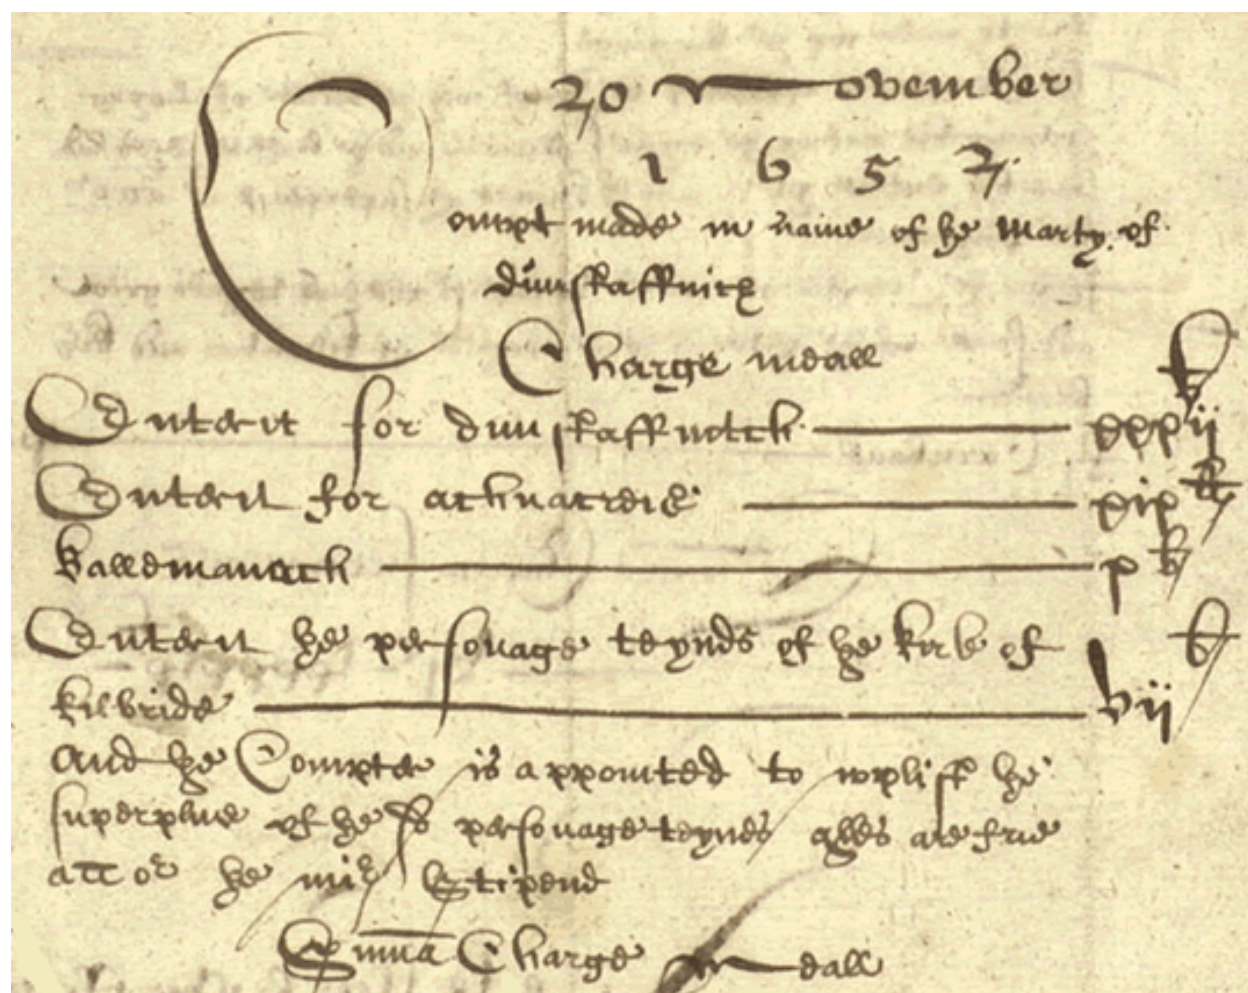 20 November
1652
Compt made in name of the Marqs. of
dunstaffnich
Charge meall
Enterit for dunstaffnitch xxx vij b
Enterit for achnacreie xix b
ballemanoch x b
Enterit the personage teynds of the kirk of
kilbride vij b
And the Compter is appointed to the
superplus of the sd personage teynds are frie
the Stipend
Summa Charge Meall